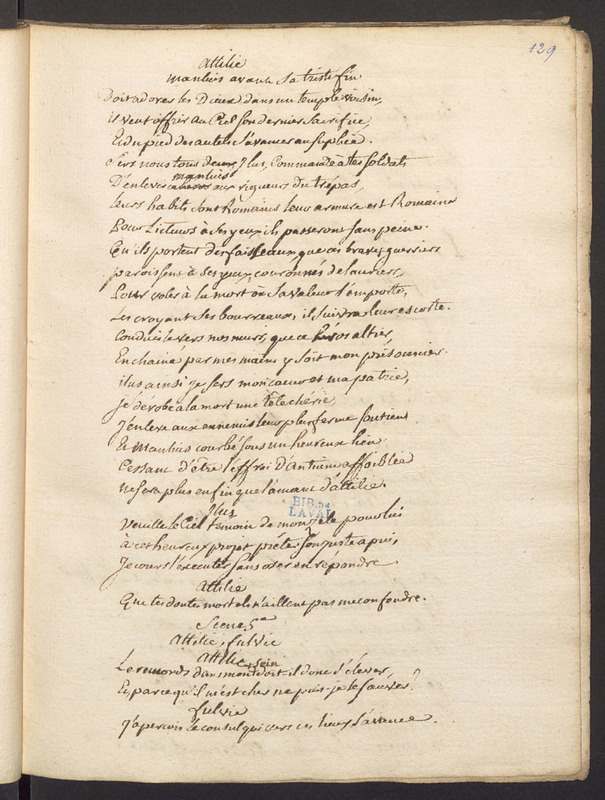 129
Attilie
Manlius avant sa triste fin
Doit adorer les Dieux dans un temple voisin,
il veut offrir au Ciel son dernier sacrifice,
Et du pied des autels s'avancer au suplice.
Sers nous tous deux Ilus, Commande à tes soldats
D'enlever manlius aux rigueurs du trépas,
leurs habits sont Romains leur armure est Romaine
Pour Licteurs à ses yeux ils passeront sans peine.
Qu'ils portent des faisseaux, que ces braves guerriers
paroissent à ses yeux, couronnés de lauriers,
Pour voler à la mort où sa valeur l'emporte,
Les croyant ses bourreaux, il suivra leur escorte.
Conduis le vers nos murs, que ce héros altier,
Enchainé par mes mains y soit mon prisonnier.
ilus ainsi je sers mon coeur et ma patrie,
Je dérobe à la mort une tête chérie,
J'enleve aux ennemis leur plus ferme soutien
Et Manlius courbé sous un heureux lien
Cessant d'être l'effroi d'Antium affoiblie
ne sera plus enfin que l'amant d'Attilie.
Ilus
BIB. DE
LAVAL
Veuille le Ciel temoin de mon zéle pour lui
à cet heureux projet prêter son juste apui,
Je cours l'éxécuter sans oser en répondre.
Attilie
Que tes doutes mortels n'aillent pas me confondre.
Scene 5e
Attilie, fulvie
Attilie
Le remords dans mon sein doit il donc s'élever,
Et parce qu'il m'est cher ne puis-je le sauver ?
fulvie
J'aperçois le consul qui vers ces lieux s'avance.